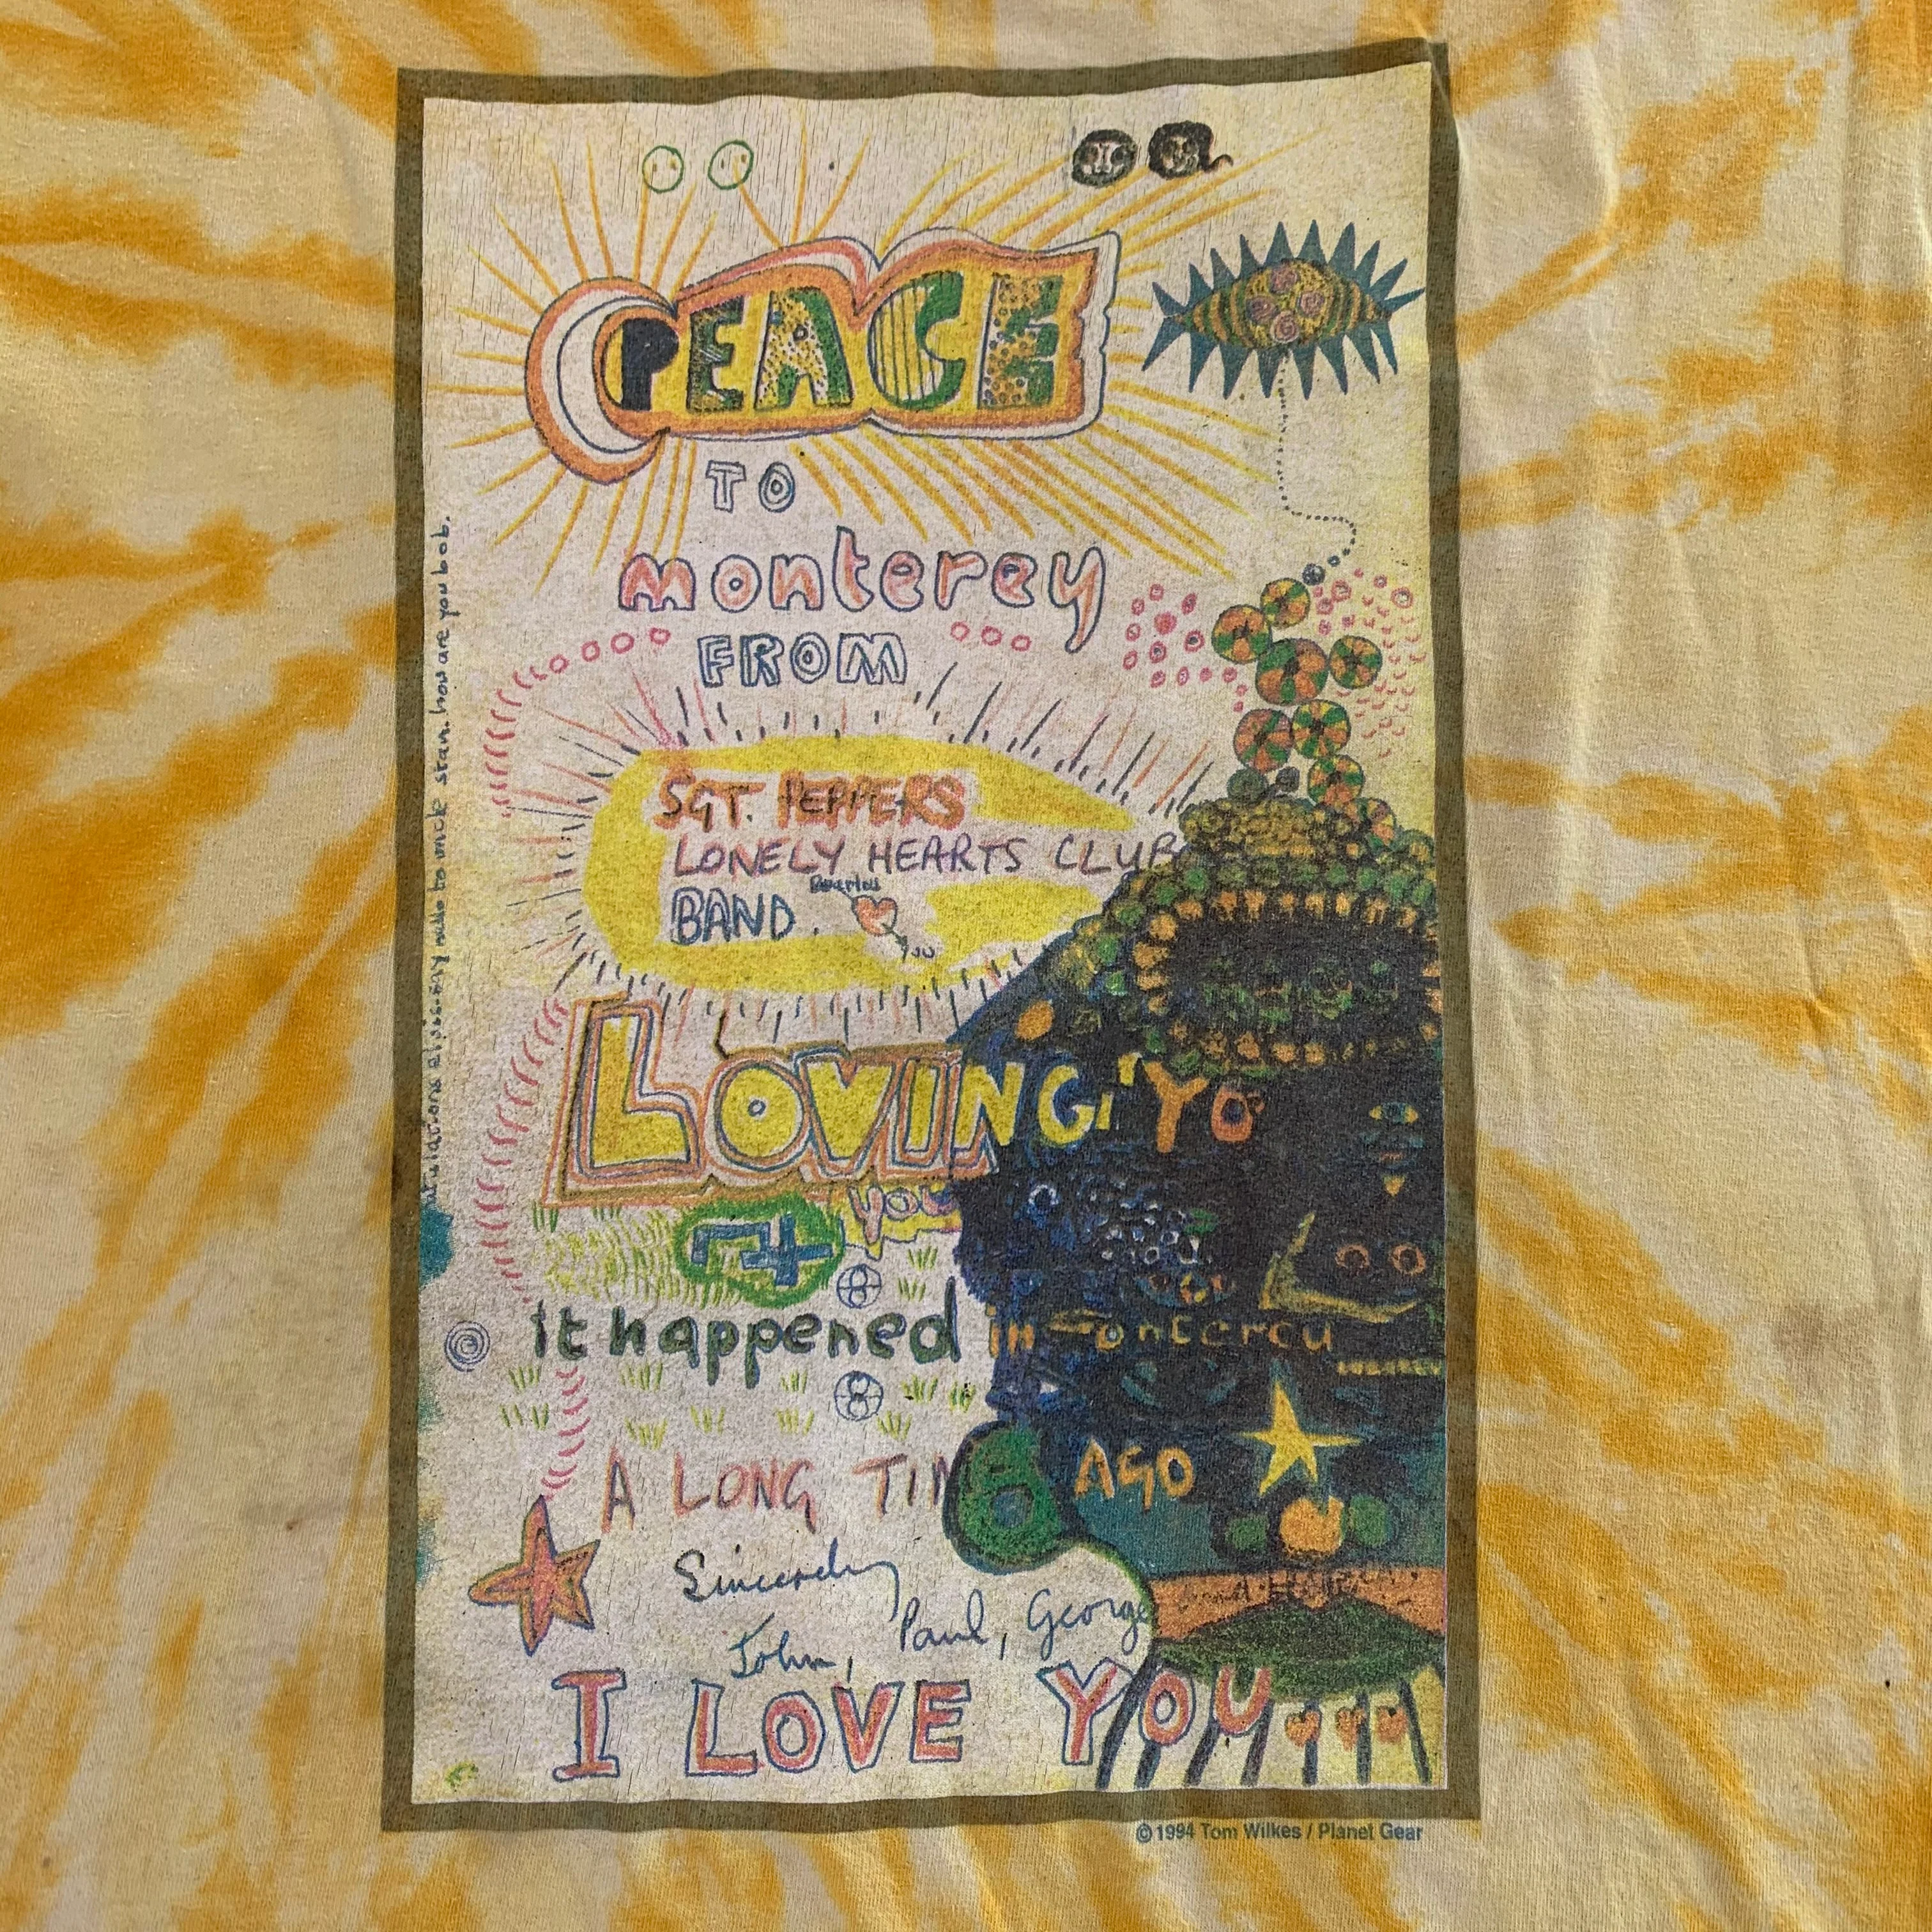 PEACE
TO
monterey
FROM
SGT. PEPPERS
LONELY HEARTS CLUB
BAND.
you
LOVING YO
you
it happened in monterey
A LONG TIME AGO
Sincerely
John, Paul, George
I LOVE YOU
also. say hello to uncle stan. how are you bob.
© 1994 Tom Wilkes / Planet Gear